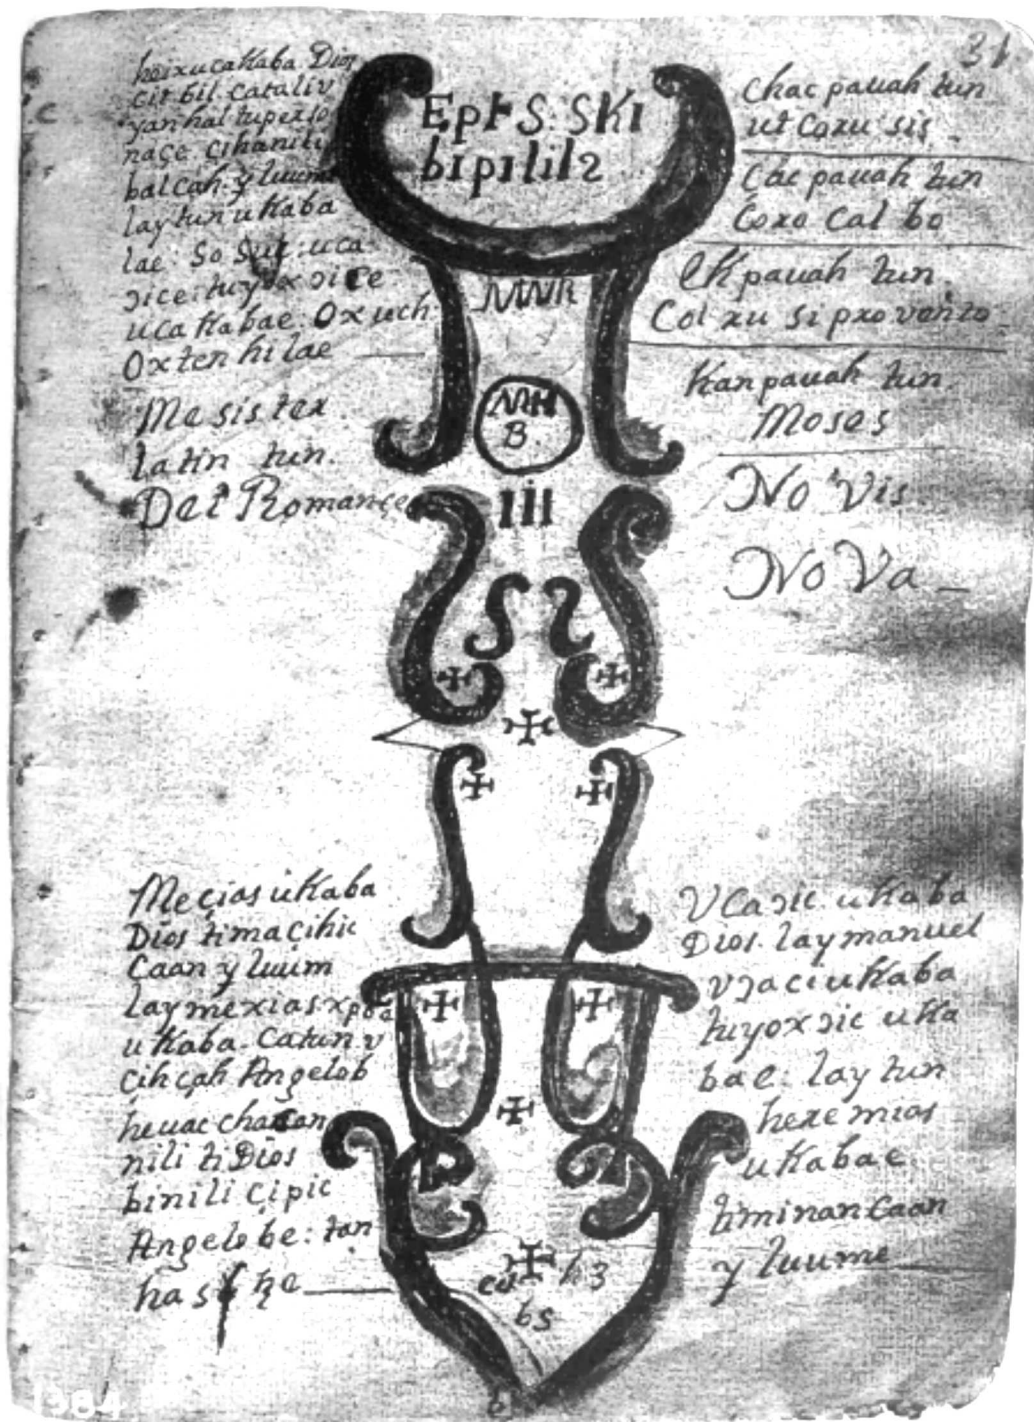 31
hoixucakaba Dios
citbil cataliv
yanhal tuperso
naçe. çihanili
balcah. y luum
laytun ukaba
lae: So Sut: uca
ɔice: tuyox ɔice
ucakabae. Oxuch
Oxten hi lae
Mesistex
latin tun.
Det Romançe
EptS: SKI
bipilils
MNR
MH
B.
III
chac pauah tun
ut Coxu sis
Çac pauah tun
Coxo Cal bo
EK pauah tun
Col xu si pxovento
Kan pauah tun
Moses
No Vis
No Va
Meçias ukaba
Dios timaçihic
Caan y luum
lay mexias xpoa
ukaba. Catun v
çihçah Angelob
heuac chacan
nili ti Dios
binili çipic
Angelobe: tan
VCaɔic. ukaba
Dios. lay manuel
vɔaci ukaba
tuyoxɔic uka
bae: lay tun
hexe mias
ukabae.
timinan Caan
y luume
h3
bs
1984